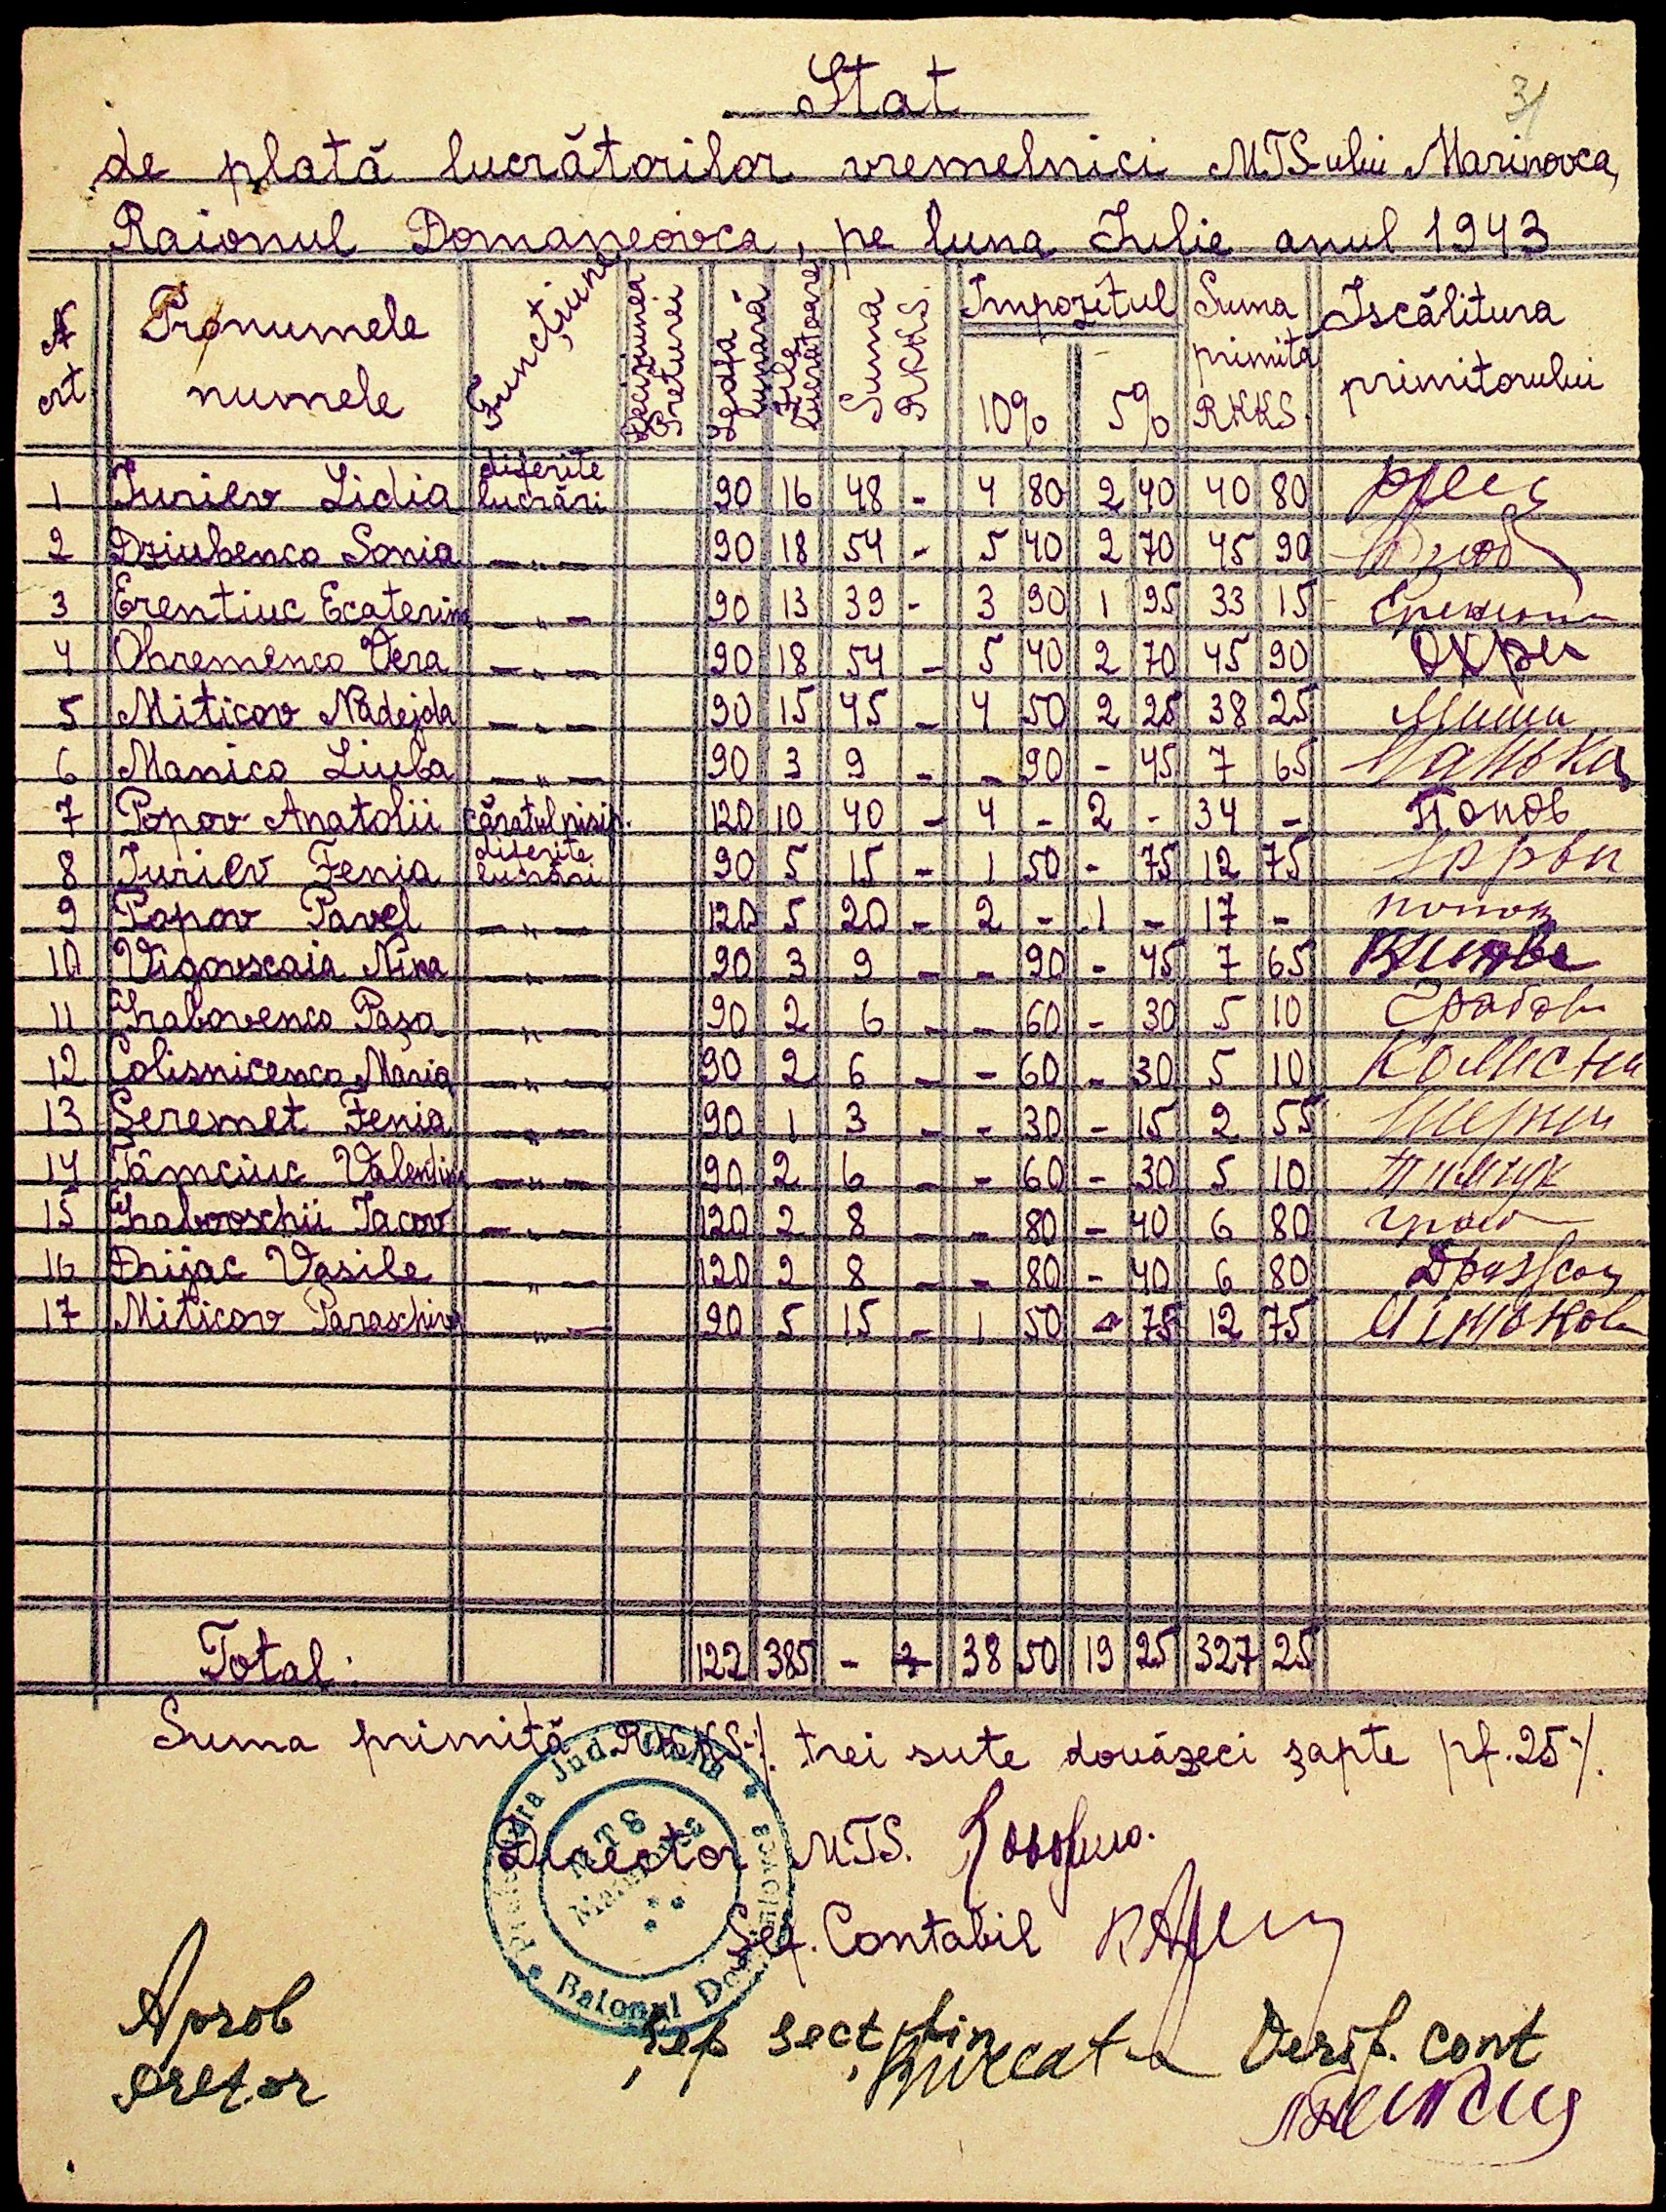 31
Stat
de plată lucrătorilor vremelnici MTS-ului Marinovca,
Raionul Domaneovca, pe luna Iulie anul 1943
N crt. Pronumele numele Funcțiune Deciziunea Preturii Leafa lunară Zile lucrătoare Suma RKKS. Impozitul 10% 5% Suma primită RKKS Iscălitura primitorului
1 Iuriev Lidia diferite lucrări 90 16 48 - 4 80 2 40 40 80
2 Dziubenco Sonia —„— 90 18 54 - 5 40 2 70 45 90 Дзюб
3 Erentiuc Ecaterina —„— 90 13 39 - 3 90 1 95 33 15
4 Ohremenco Vera —„— 90 18 54 - 5 40 2 70 45 90 Охре
5 Miticov Nadejda —„— 90 15 45 - 4 50 2 25 38 25
6 Manico Liuba —„— 90 3 9 - - 90 - 45 7 65 Манько
7 Popov Anatolii căratul nisip. 120 10 40 - 4 - 2 - 34 - Попов
8 Iuriev Fenia diferite lucrări 90 5 15 - 1 50 - 75 12 75
9 Popov Pavel —„— 120 5 20 - 2 - 1 - 17 - попов
10 Vigovscaia Nina —„— 90 3 9 - - 90 - 45 7 65
11 Grabovenco Pașa —„— 90 2 6 - - 60 - 30 5 10 Грабов
12 Colisnicenco Maria —„— 90 2 6 - - 60 - 30 5 10
13 Șeremet Fenia —„— 90 1 3 - - 30 - 15 2 55
14 Tâmciuc Valentina —„— 90 2 6 - - 60 - 30 5 10 тимчук
15 Grabovschii Iacov —„— 120 2 8 - - 80 - 40 6 80
16 Drijac Vasile —„— 120 2 8 - - 80 - 40 6 80
17 Miticov Paraschiva —„— 90 5 15 - 1 50 - 75 12 75
Total: 122 385 - 38 50 19 25 327 25
Suma primită RKKS-/. trei sute douăzeci șapte pf. 25-/.
Prefectura Jud. Golta * Raionul Domaneovca *
MTS
Marinovca
Director MTS.
Șef. Contabil
Aprob
Pretor
Șef sect fin
Verif. cont